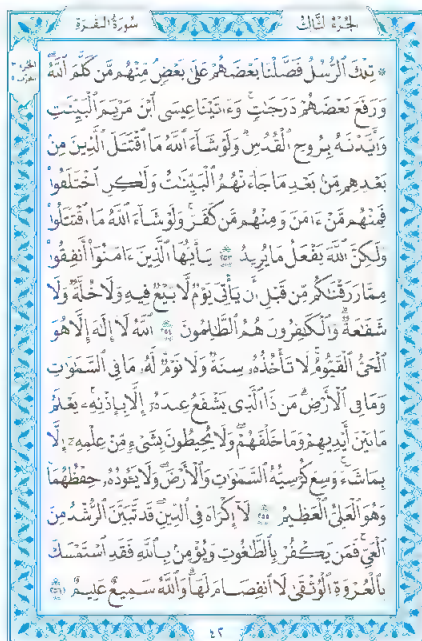 الجزء الثالث
سورة البقرة
الجزء ٣
۞ تِلْكَ الرُّسُلُ فَضَّلْنَا بَعْضَهُمْ عَلَىٰ بَعْضٍ مِّنْهُم مَّن كَلَّمَ اللَّهُ
وَرَفَعَ بَعْضَهُمْ دَرَجَاتٍ وَءَاتَيْنَا عِيسَى ابْنَ مَرْيَمَ الْبَيِّنَاتِ
وَأَيَّدْنَاهُ بِرُوحِ الْقُدُسِ وَلَوْ شَاءَ اللَّهُ مَا اقْتَتَلَ الَّذِينَ مِن
بَعْدِهِم مِّن بَعْدِ مَا جَاءَتْهُمُ الْبَيِّنَاتُ وَلَٰكِنِ اخْتَلَفُوا
فَمِنْهُم مَّنْ ءَامَنَ وَمِنْهُم مَّن كَفَرَ وَلَوْ شَاءَ اللَّهُ مَا اقْتَتَلُوا
وَلَٰكِنَّ اللَّهَ يَفْعَلُ مَا يُرِيدُ ٢٥٣ يَٰأَيُّهَا الَّذِينَ ءَامَنُوا أَنفِقُوا
مِمَّا رَزَقْنَاكُم مِّن قَبْلِ أَن يَأْتِيَ يَوْمٌ لَّا بَيْعٌ فِيهِ وَلَا خُلَّةٌ وَلَا
شَفَاعَةٌ وَالْكَافِرُونَ هُمُ الظَّالِمُونَ ٢٥٤ اللَّهُ لَا إِلَٰهَ إِلَّا هُوَ
الْحَيُّ الْقَيُّومُ لَا تَأْخُذُهُ سِنَةٌ وَلَا نَوْمٌ لَّهُ مَا فِي السَّمَاوَاتِ
وَمَا فِي الْأَرْضِ مَن ذَا الَّذِي يَشْفَعُ عِندَهُ إِلَّا بِإِذْنِهِ يَعْلَمُ
مَا بَيْنَ أَيْدِيهِمْ وَمَا خَلْفَهُمْ وَلَا يُحِيطُونَ بِشَيْءٍ مِّنْ عِلْمِهِ إِلَّا
بِمَا شَاءَ وَسِعَ كُرْسِيُّهُ السَّمَاوَاتِ وَالْأَرْضَ وَلَا يَئُودُهُ حِفْظُهُمَا
وَهُوَ الْعَلِيُّ الْعَظِيمُ ٢٥٥ لَا إِكْرَاهَ فِي الدِّينِ قَد تَّبَيَّنَ الرُّشْدُ مِنَ
الْغَيِّ فَمَن يَكْفُرْ بِالطَّاغُوتِ وَيُؤْمِن بِاللَّهِ فَقَدِ اسْتَمْسَكَ
بِالْعُرْوَةِ الْوُثْقَىٰ لَا انفِصَامَ لَهَا وَاللَّهُ سَمِيعٌ عَلِيمٌ ٢٥٦
٤٢